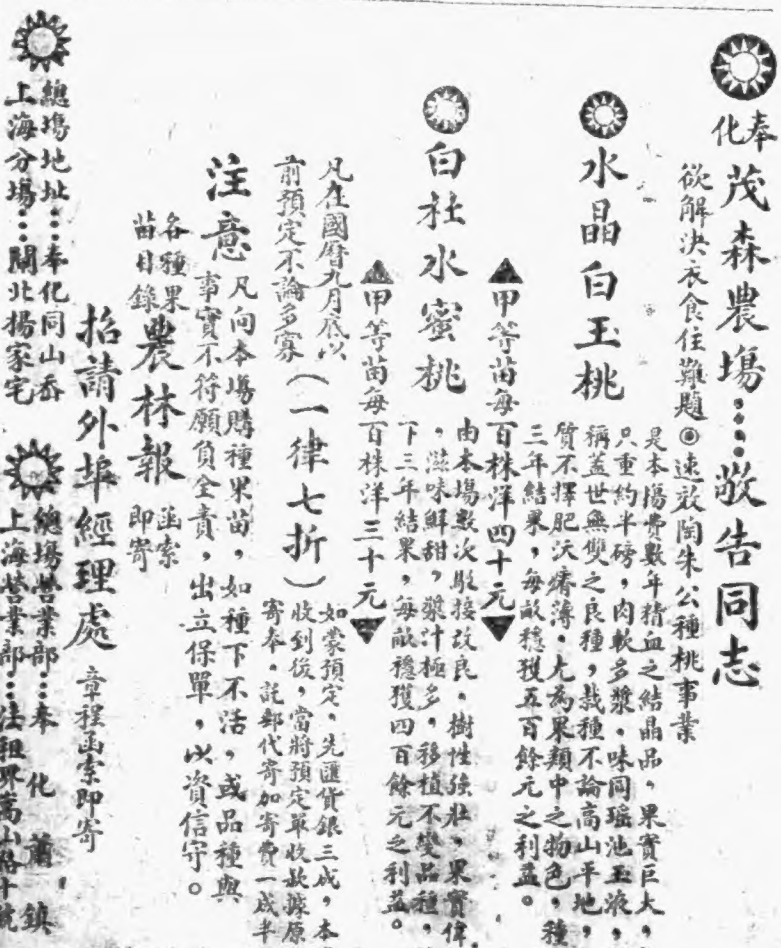 奉化 茂森農塲⋯⋯敬告同志
欲解決衣食住難題◎速效陶朱公種桃事業
水晶白玉桃
是本塲費數年精血之結晶品。果實巨大,
只重約半磅,肉軟多漿。味同瑶池玉液,
稱蓋世無雙之良種,栽種不論高山平地,
質不擇肥沃瘠薄。尤為果類中之物色,種
三年結果,每畝穩獲五百餘元之利益。
▲甲等苗每百株洋四十元▼
白杜水蜜桃
由本塲數次馭接改良。樹性强壯,果實偉
,滋味鮮甜,漿汁極多,移植不變品種,
下三年結果,每畝穩獲四百餘元之利益。
▲甲等苗每百株洋三十元▼
凡在國曆九月底以
前預定不論多寡
(一律七折)
如蒙預定,先匯貨銀三成,本
收到後,當將預定單收款據原
寄奉。託郵代寄加寄費一成半
注意
凡向本塲購種果苗,如種下不活,或品種與
事實不符願負全責,出立保單,以資信守。
各種果
苗目錄
農林報
函索
即寄
招請外埠經理處 章程函索即寄
總塲地址⋯⋯奉化同山岙
上海分塲⋯⋯閘北楊家宅
總塲營業部⋯⋯奉化蕭鎮
上海營業部⋯⋯法租界嵩山路十號